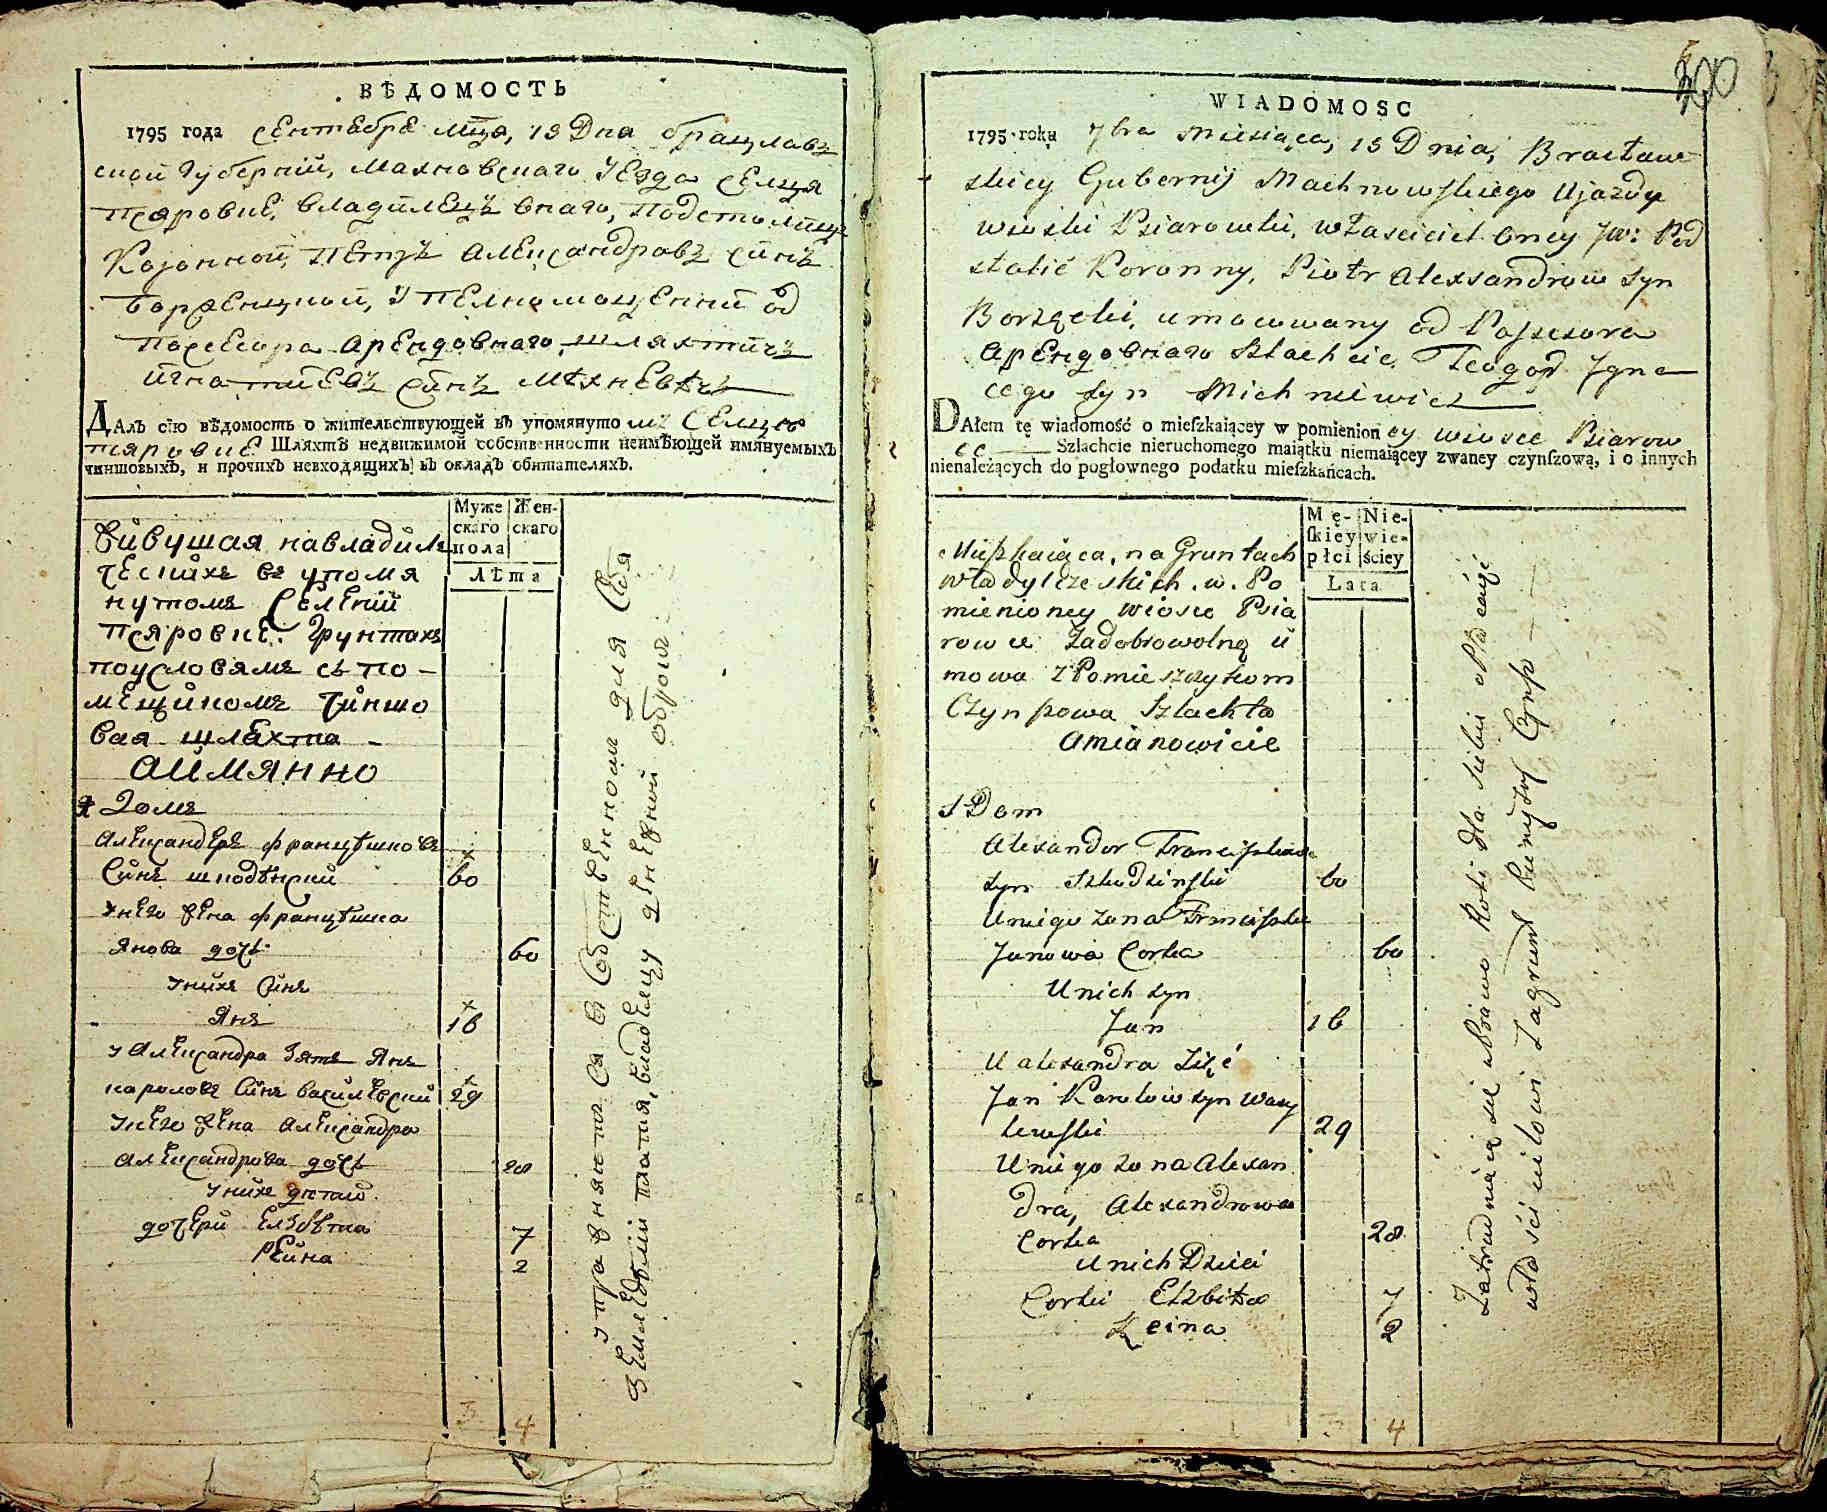 ВѢДОМОСТЬ
1795 года Сентебра мца, 13 Дна брацлавъ
ской Губерніи, Махновскаго Уезда Селца
Псяровке, владѣлецъ онаго, Подстолицъ
Коронной, Петръ Александровъ синъ
Борженцкой, Упелномоценни од
посесора Арендовнаго, шляхтичъ
Игнатиевъ синъ Мѣхневѣчъ
ДАлъ сїю вѣдомость о жительствующей въ упомянуто мъ Селцѣ
псяровке Шляхтѣ недвижимой собственности неимѣющей имянуемыхъ
чиншовыхъ, и прочихъ невходящихъ въ окладъ обитателяхъ.
Муже Жен-
скаго скаго
пола
Лѣта
Живущая навладил
ческихъ въ упомя
нутомъ Селеній
Псяровке. Грунтахъ
поусловямъ съ по-
мещикомъ Чиншо
вая шляхта
Аимянно
1 Домъ
Александеръ францѣшковъ
Синъ шкодѣнский 60
Унего жена францѣшка
Янова дочь 60
Унихъ Синъ
Янъ 16
У Александра Зять Янъ
кароловъ Синъ василевский 29
Унего жена Александра
Александрова дочь 28
Унихъ дѣтей
дочери Елзбѣта 7
Реина 2
3 4
Упражняется въ собственном для себя
Земледѣлии платя, владелцу денежной оброкъ
200
WIADOMOSC
1795 roku 7bra Miesiąca, 13 Dnia, Bracław
skiey Gubernij Machnowskiego Ujazdu
wioski Psiarowki, właściciel oney JW: Pod
stolic Koronny, Piotr Alexandrow syn
Borzęcki, umocowany od Possesora
Арендовнаго Szlachcic Teogod Igna
cego syn Michniewicz
DAłem tę wiadomość o mieſzkaiącey w pomienion ey wiosce Psiarow
ce Szlachcie nieruchomego maiątku niemaiącey zwaney czynſzową, i o innych
nienależących do pogłownego podatku mieſzkańcach.
Mę- Nie-
ſkiey wie-
płci ściey
Lata
Mięszkaiąca, na Gruntach
władylczeskich. w. Po
mienioney wiosce Psia
rowce Zadobrowolną u
mowa z Pomieszczykom
Czynszowa Szlachta
Amianowicie
1 Dom
Alexander Franciszkow
syn Szkodzinski 60
Uniego żona Franciszka
Janowa Corka 60
Unich syn
Jan 16
U alexandra Zięć
Jan Karolow syn Wasy
lewski 29
Uniego żona Alexan
dra, Alexandrowa
Corka 28
Unich Dzieci
Corki Elzbieta 7
Reina 2
3 4
Zatrudniaią się uprawo Roli dla siebie opłacaiąc
właścicielowi Zagrunt Pieniężny Czynsz